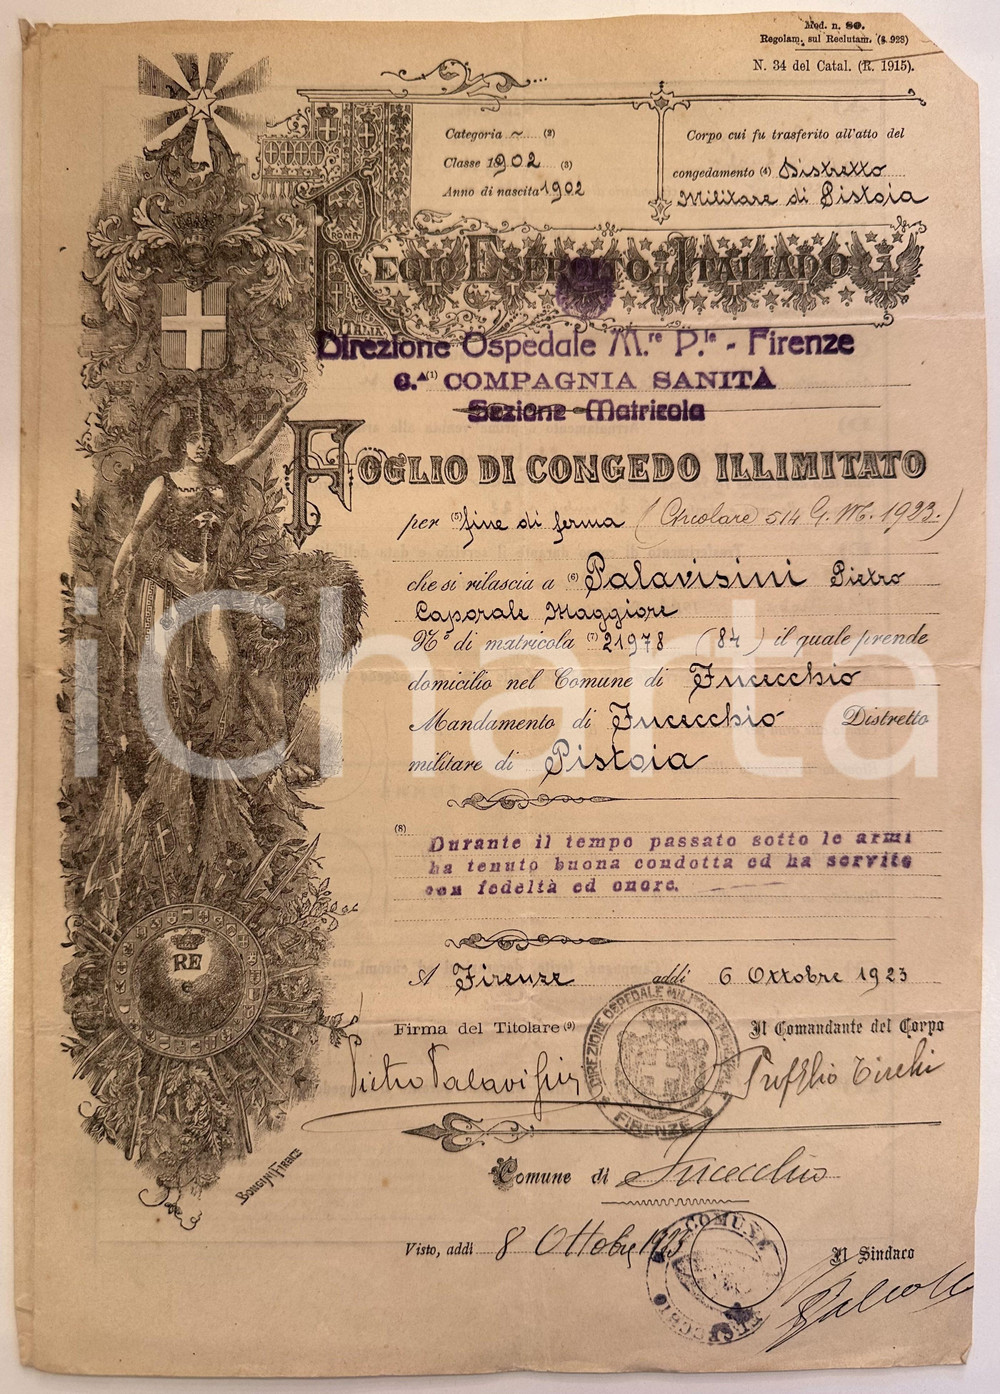 Mod. n. 80.
Regolam. sul Reclutam. (§ 923)
N. 34 del Catal. (R. 1915).
Categoria ~ (2)
Classe 1902 (3)
Anno di nascita 1902
Corpo cui fu trasferito all'atto del
congedamento (4) Distretto
Militare di Pistoia
ROMA
REGIO ESERCITO ITALIANO
ITALIA
Direzione Ospedale M.re P.le - Firenze
6.a (1) COMPAGNIA SANITÀ
Sezione Matricola
FOGLIO DI CONGEDO ILLIMITATO
per (5) fine di ferma (Circolare 514 G. M. 1923.)
che si rilascia a (6) Palavisini Pietro
Caporale Maggiore
N.° di matricola (7) 21978 (84) il quale prende
domicilio nel Comune di Fucecchio
Mandamento di Fucecchio Distretto
militare di Pistoia
(8)
Durante il tempo passato sotto le armi
ha tenuto buona condotta ed ha servito
con fedeltà ed onore.
RE
A Firenze addì 6 Ottobre 1923
Firma del Titolare (9)
Il Comandante del Corpo
Pietro Palavisini
DIREZIONE OSPEDALE MILITARE PRINCIPALE
FIRENZE
BORGINI FIRENZE
Comune di Fucecchio
Visto, addì 8 Ottobre 1923
COMUNE
FUCECCHIO
Il Sindaco
iCharta